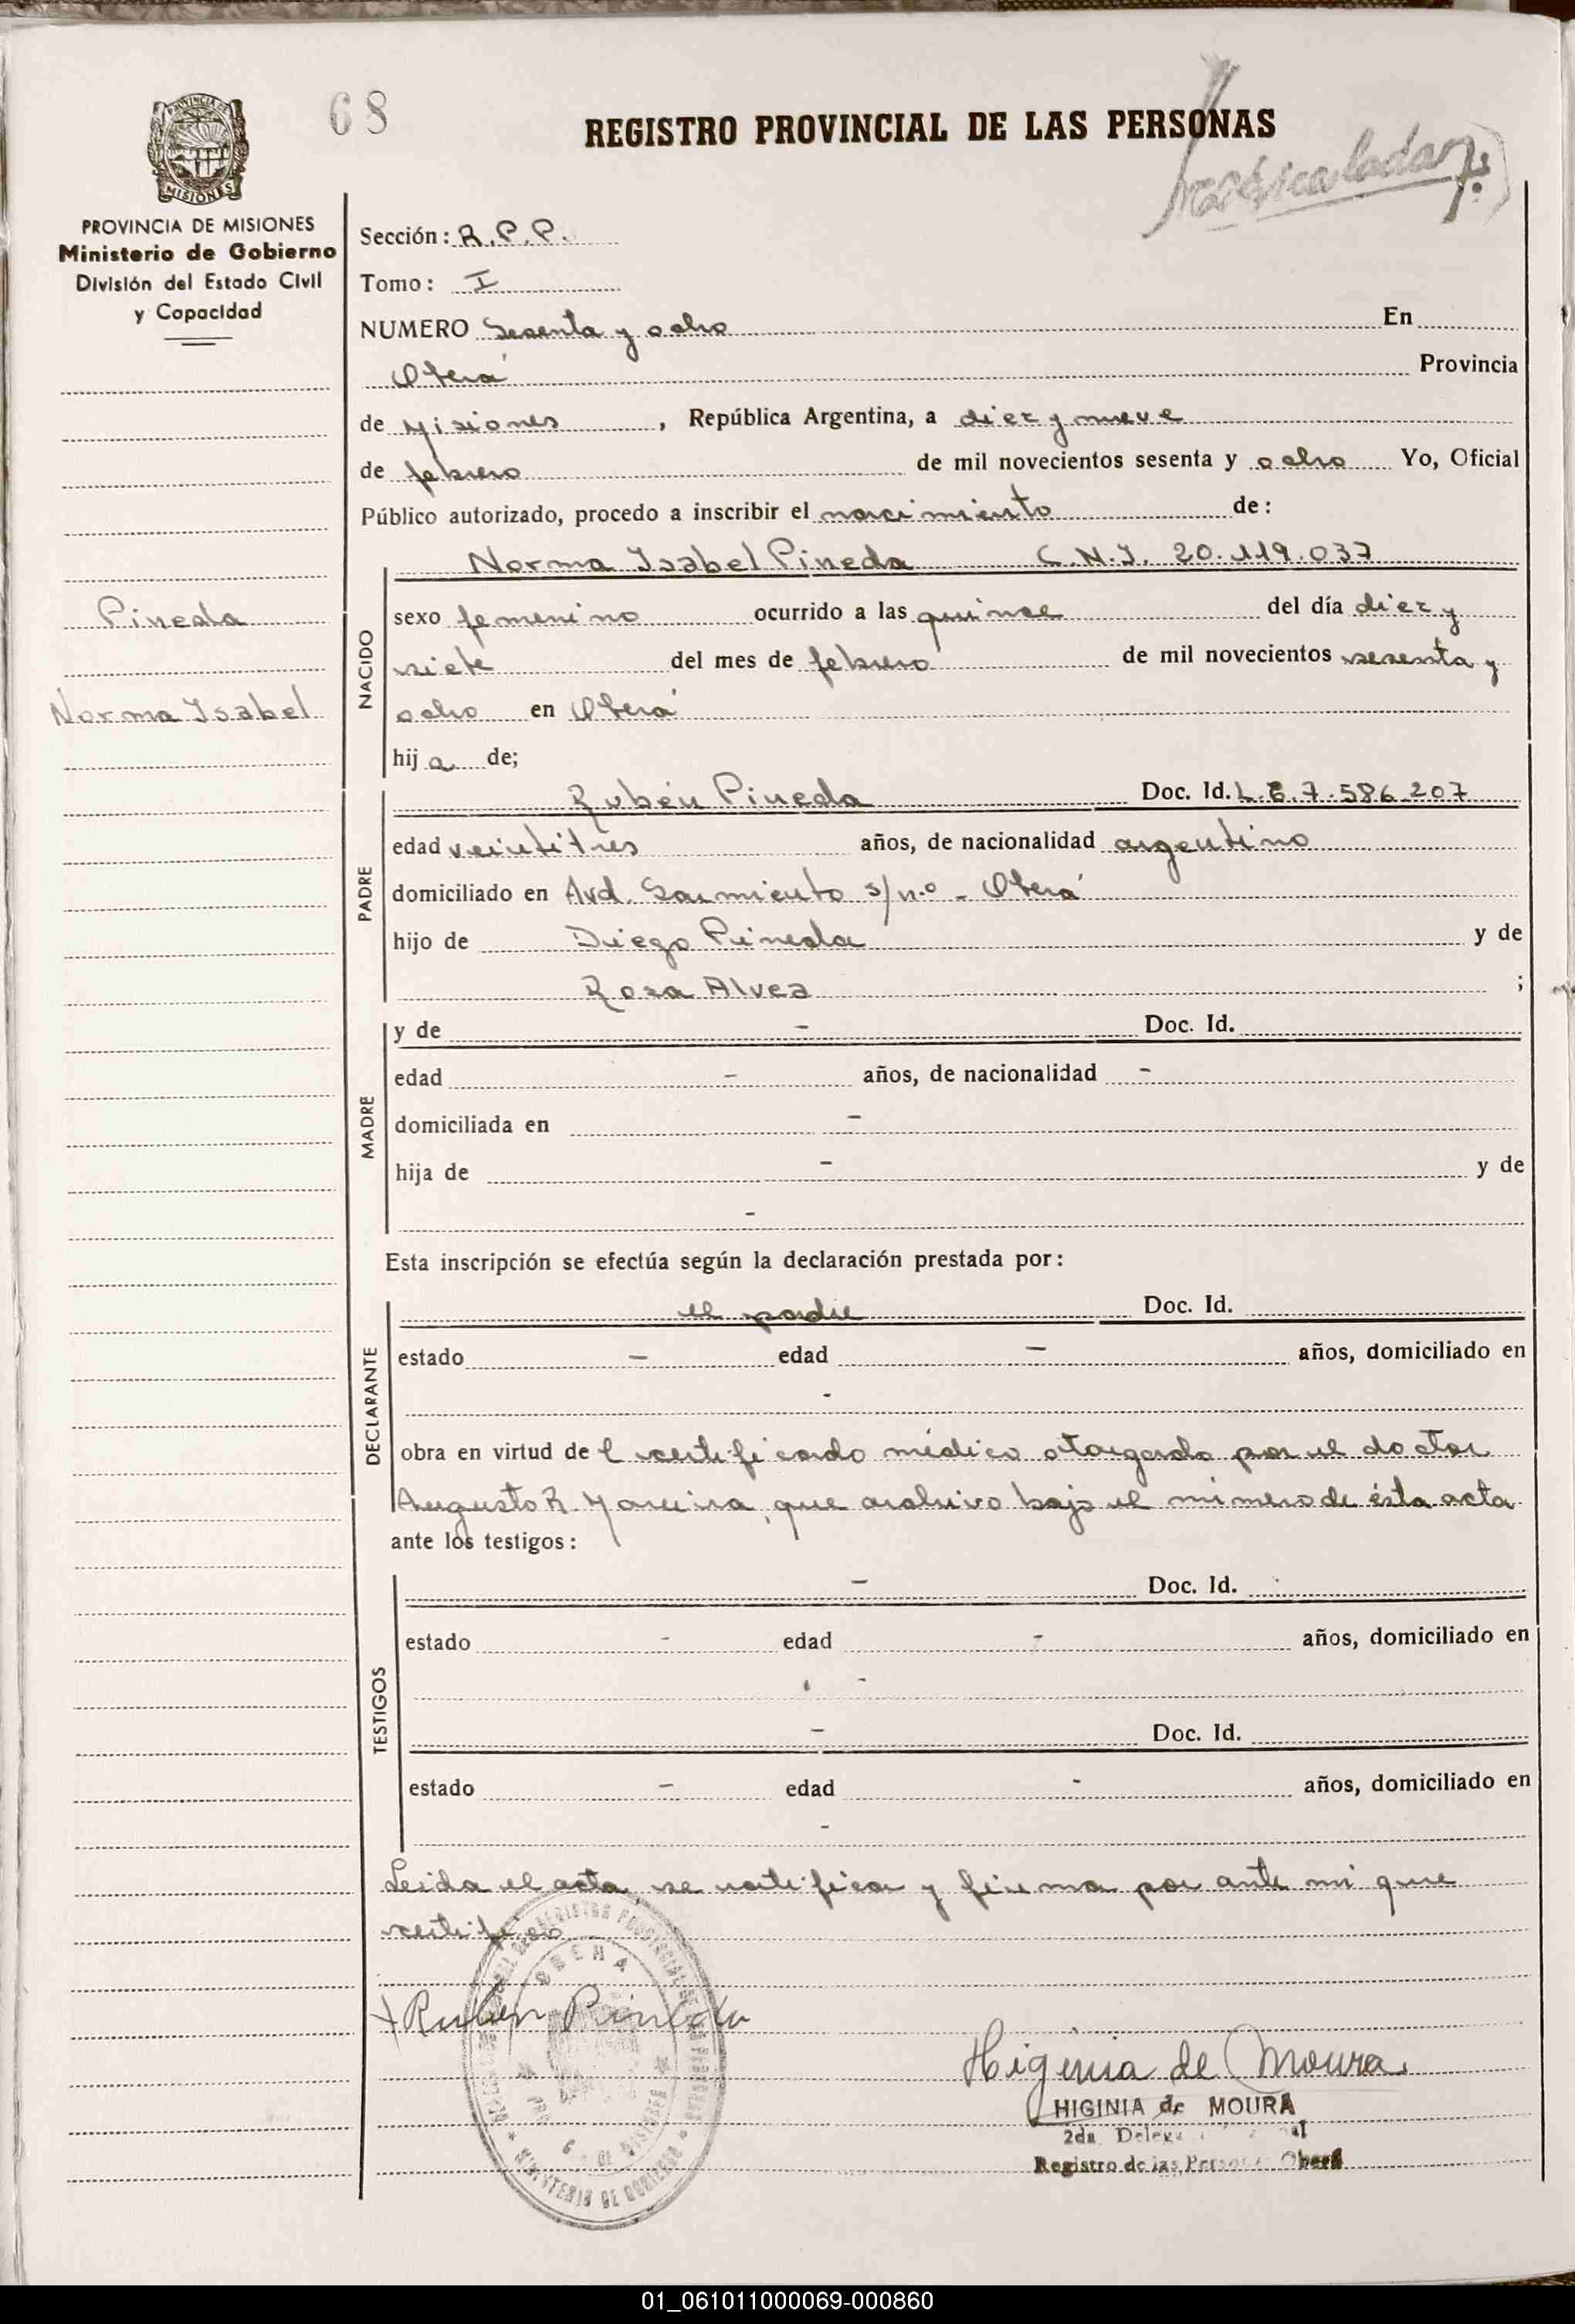 68
REGISTRO PROVINCIAL DE LAS PERSONAS
PROVINCIA DE MISIONES
Ministerio de Gobierno
División del Estado Civil
y Capacidad
Sección: R.P.P.
Tomo: I
NUMERO Sesenta y ocho En
Oberá Provincia
de Misiones, República Argentina, a diez y nueve
de febrero de mil novecientos sesenta y ocho Yo, Oficial
Público autorizado, procedo a inscribir el nacimiento de:
Norma Isabel Pineda C.N.I. 20.119.037
Pineda
Norma Isabel
NACIDO
sexo femenino ocurrido a las quince del día diez y
siete del mes de febrero de mil novecientos sesenta y
ocho en Oberá
hija de;
PADRE
Rubén Pineda Doc. Id. L.E.7.586.207
edad veintitres años, de nacionalidad argentino
domiciliado en Avd. Sarmiento s/n.º - Oberá
hijo de Diego Pineda y de
Rosa Alvez ;
MADRE
y de - Doc. Id.
edad - años, de nacionalidad -
domiciliada en -
hija de - y de
-
Esta inscripción se efectúa según la declaración prestada por:
DECLARANTE
el padre Doc. Id.
estado - edad - años, domiciliado en
-
obra en virtud del certificado médico otorgado por el doctor
Augusto R. que archivo bajo el número de ésta acta
ante los testigos:
TESTIGOS
- Doc. Id.
estado - edad - años, domiciliado en
-
- Doc. Id.
estado - edad - años, domiciliado en
-
Leida el acta, se ratifica y firma por ante mi que
certifico
Ruben Pineda
OBERA
MINISTERIO DE GOBIERNO
Higinia de Moura
HIGINIA de MOURA
2da.
Registro de las Oberá
01_061011000069-000860